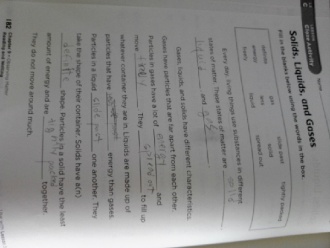 Cloze Activity
Solids, Liquids, and Gases
Fill in the blanks below using the words in the box.
definite gas slide past tightly packed
energy liquid solid
freely less spread out
Every day, living things use substances in different
states of matter. Three states of matter are solid
liquid, and gas.
Gases, liquids, and solids have different characteristics.
Gases have particles that are far apart from each other.
Particles in gases have a lot of energy and
move freely. They spread out to fill up
whatever container they are in. Liquids are made up of
particles that have less energy than gases.
Particles in a liquid slide past one another. They
take the shape of their container. Solids have a(n)
definite shape. Particles in a solid have the least
amount of energy and are tightly packed together.
They do not move around much.
182 Chapter
Reading and Writing